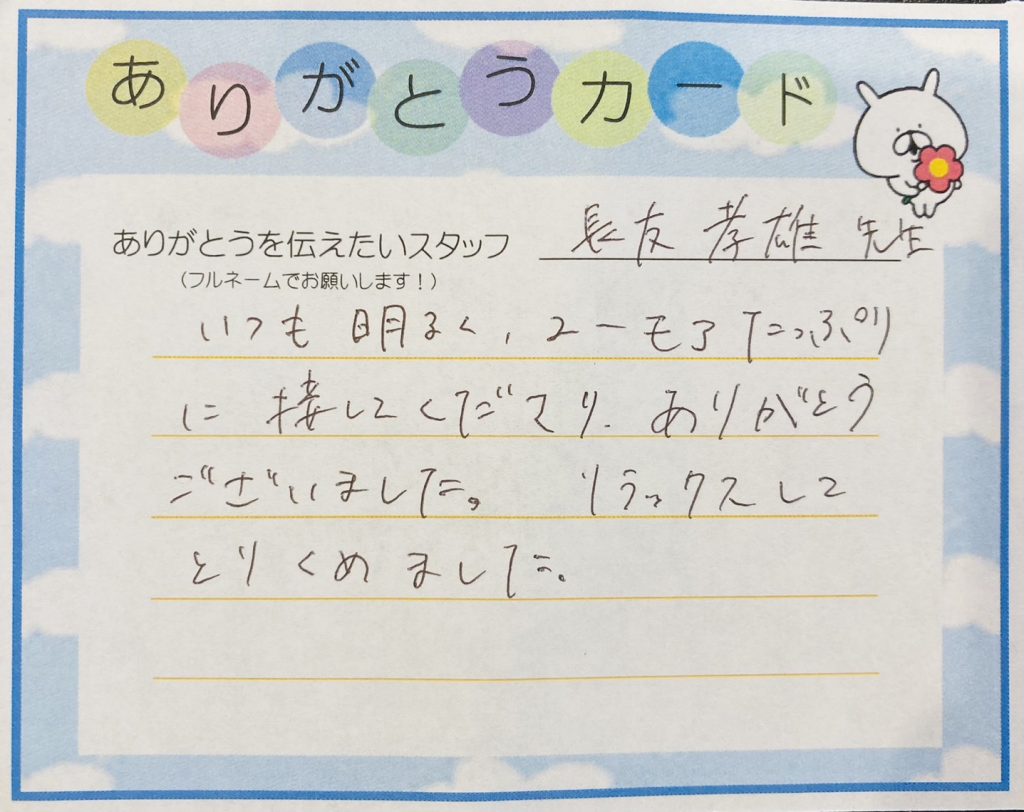 ありがとうカード
ありがとうを伝えたいスタッフ 長友 孝雄 先生
(フルネームでお願いします!)
いつも 明るく、ユーモアたっぷり
に 接してくださり、ありがとう
ございました。 リラックスして
とりくめました。